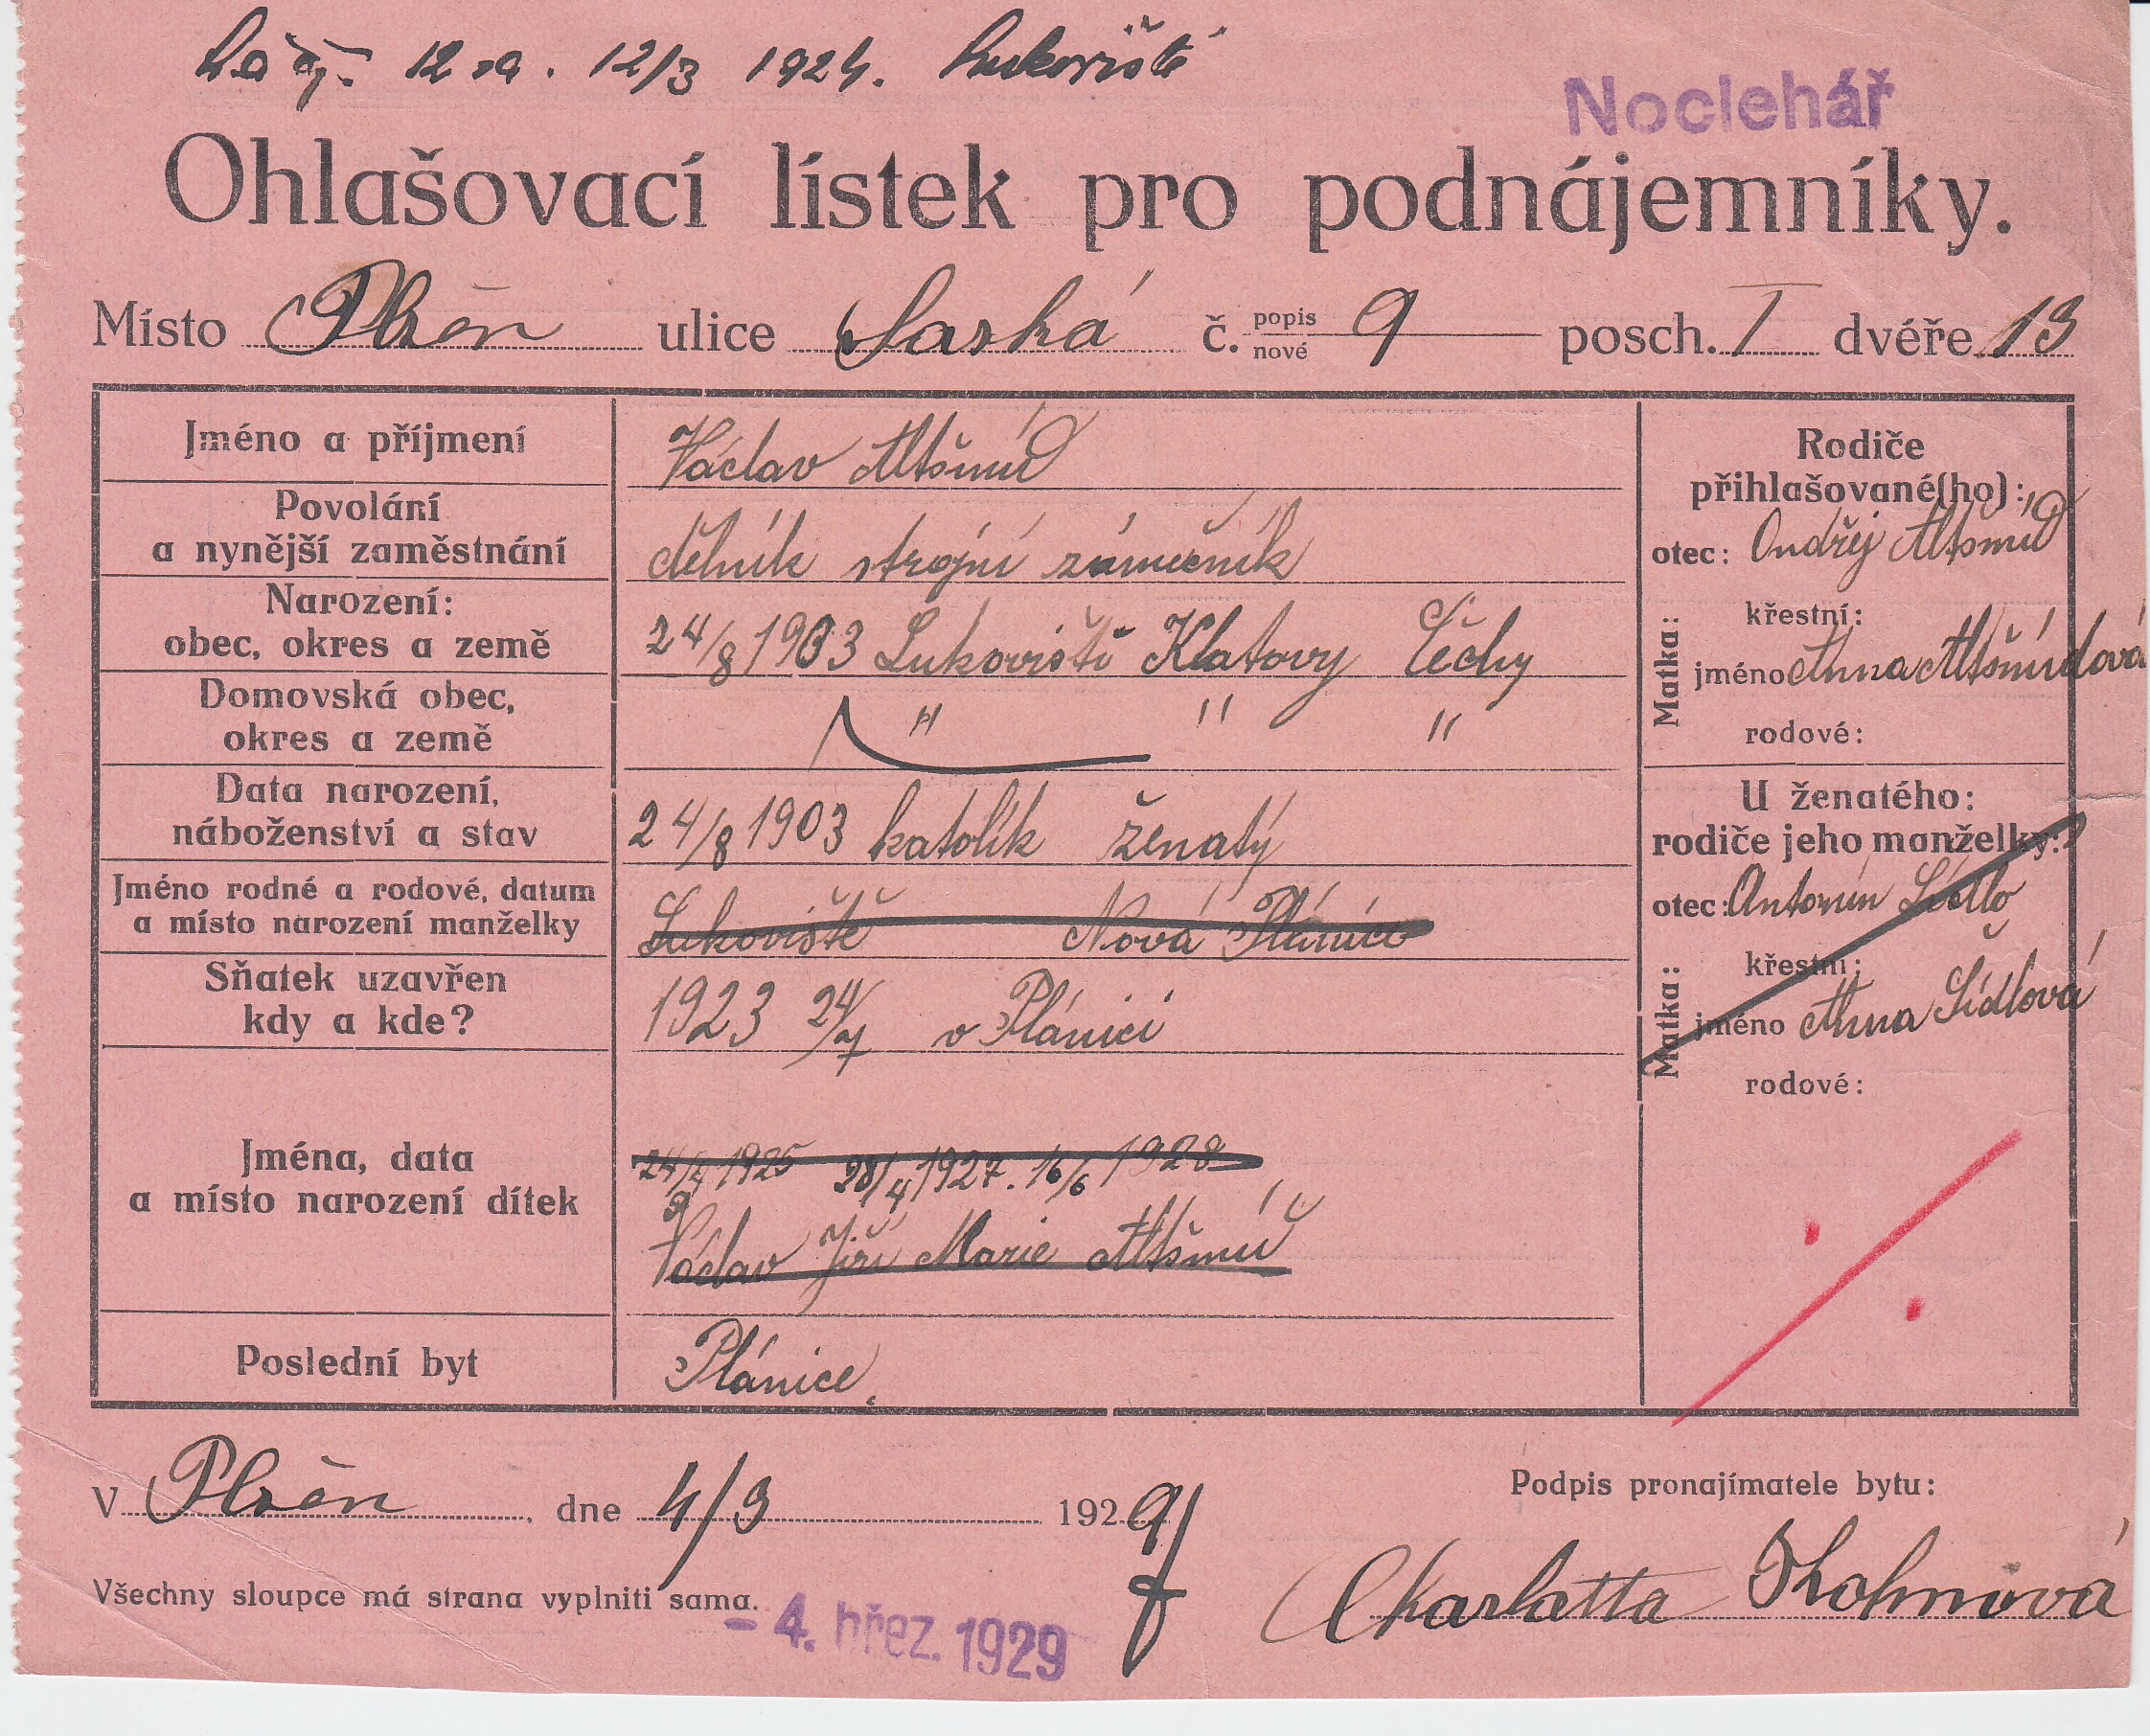 12 1924. Lukoviště
Noclehář
Ohlašovací lístek pro podnájemníky.
Místo Plzeň ulice Saská č. popis nové 9 posch. I dvéře 13
Jméno a příjmení Václav Altšmíd
Povolání
a nynější zaměstnání dělník strojní zámečník
Narození:
obec, okres a země 24/8 1903 Lukoviště Klatovy Čechy
Domovská obec,
okres a země " " "
Data narození,
náboženství a stav 24/8 1903 katolík ženatý
Jméno rodné a rodové, datum
a místo narození manželky Lukoviště Nová Plánice
Sňatek uzavřen
kdy a kde? 1923 24/7 v Plánici
Jména, data
a místo narození dítek 1925 28/4 1927. 16/6 1928
Václav Jiří Marie Altšmíd
Poslední byt Plánice
Rodiče
přihlašované(ho):
otec: Ondřej Altšmíd
Matka:
křestní:
jméno Anna Altšmídová
rodové:
U ženatého:
rodiče jeho manželky:
otec: Antonín Šídlo
Matka:
křestní:
jméno Anna Šídlová
rodové:
V Plzeň, dne 4/3 1929
Podpis pronajímatele bytu:
Charlotta Kohnová
Všechny sloupce má strana vyplniti sama.
- 4. břez. 1929